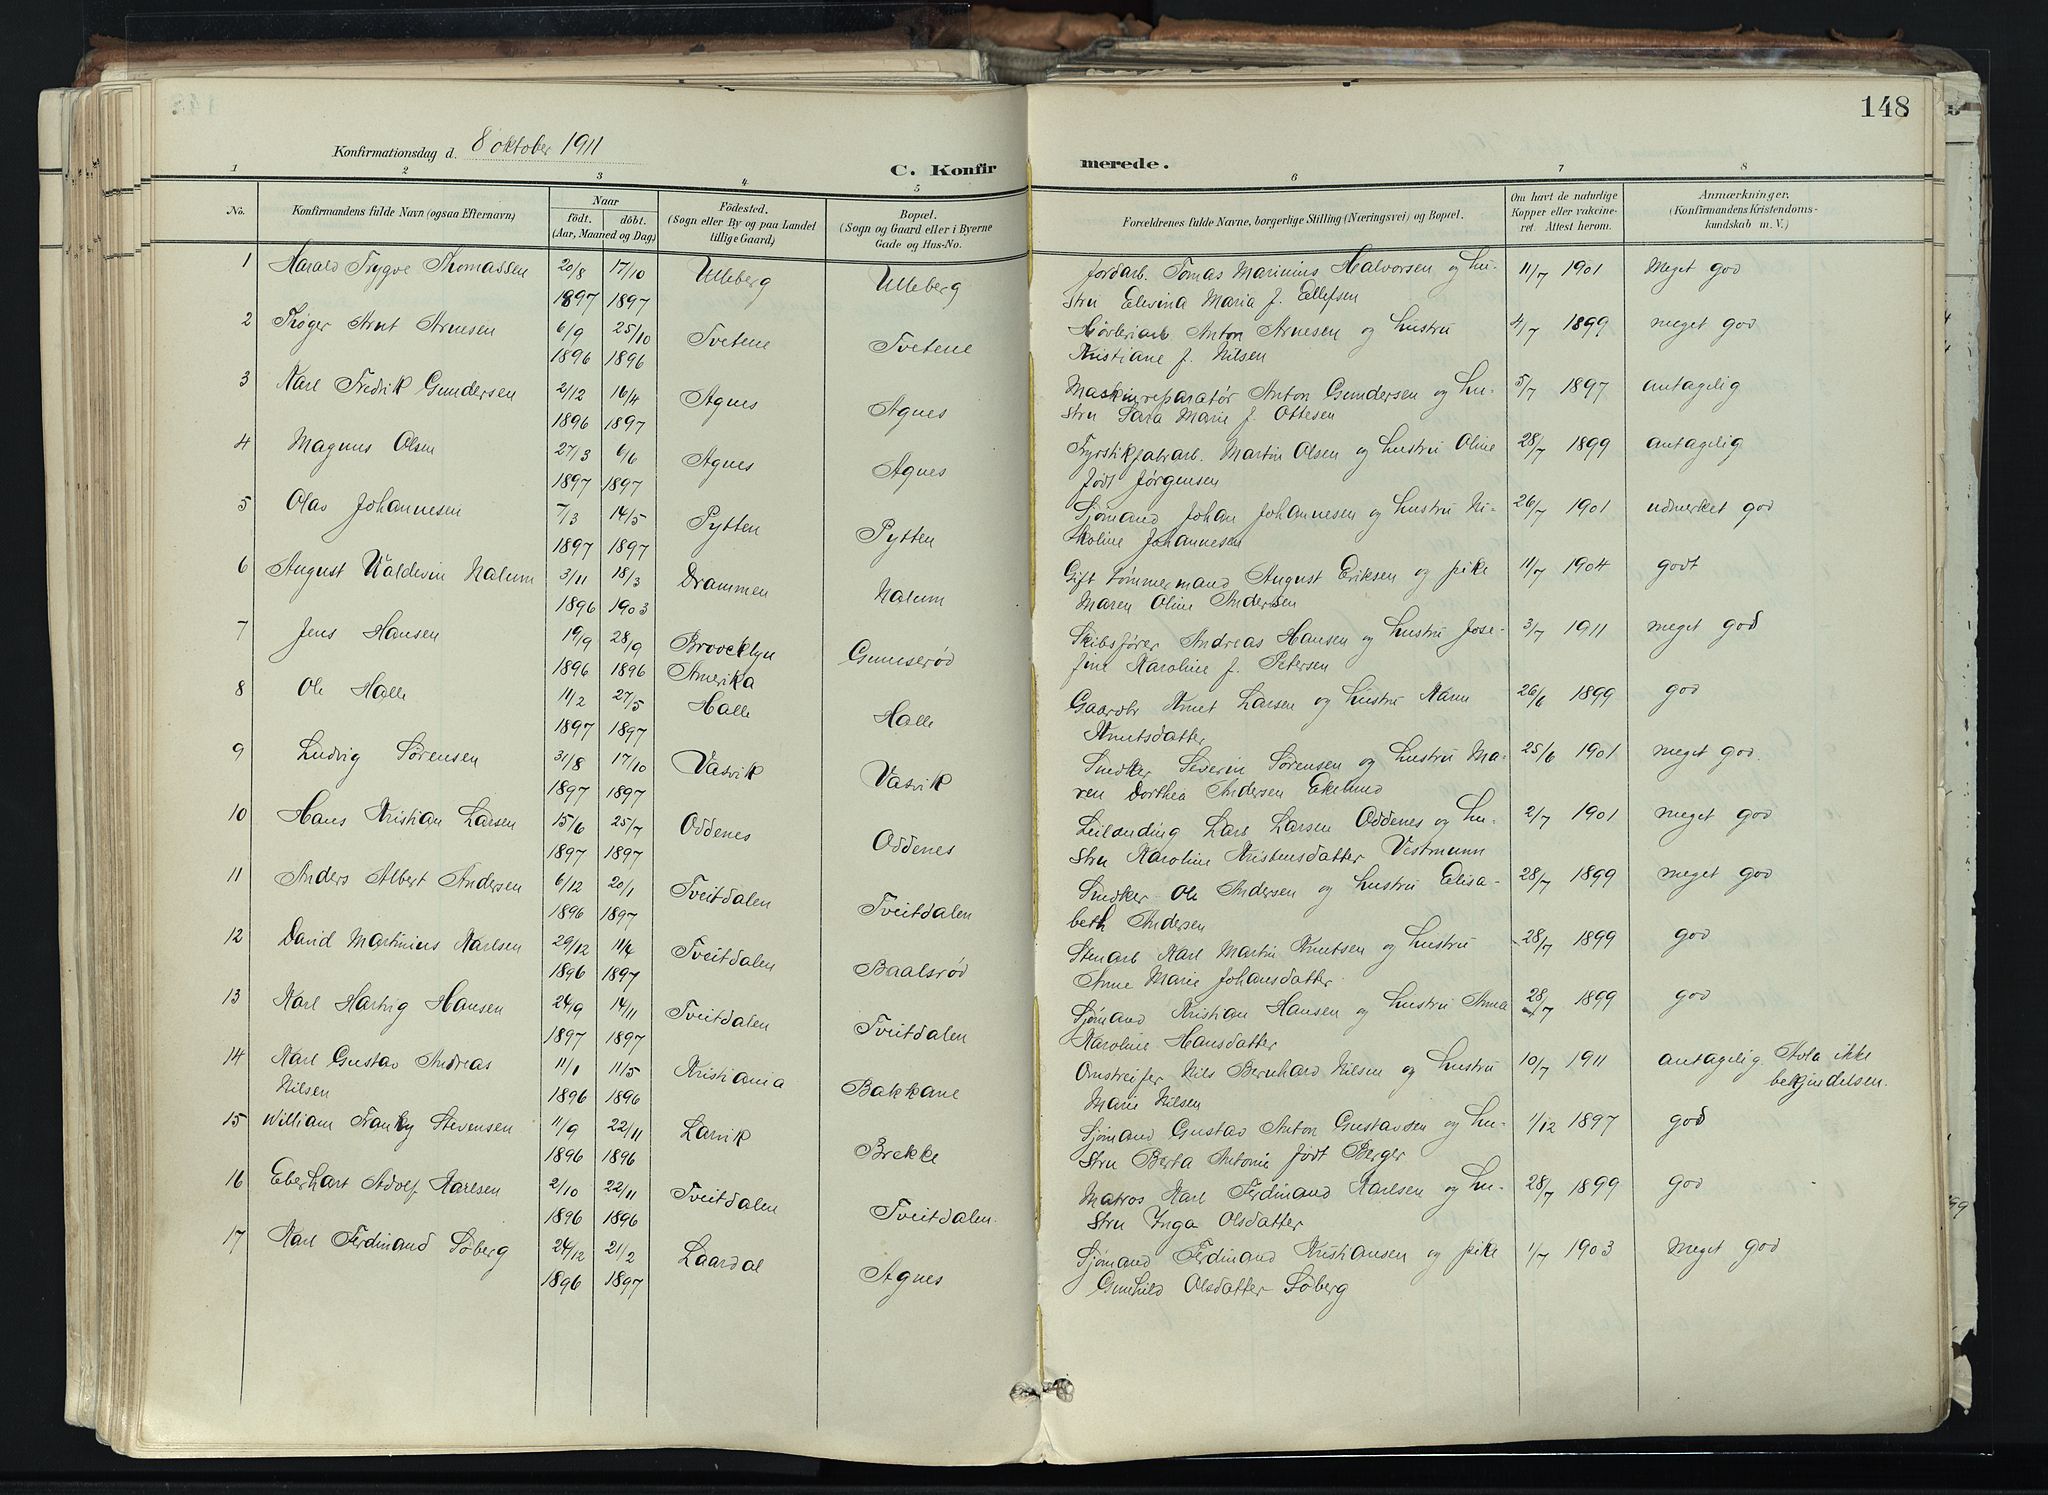 148
Konfirmationsdag d. 8 oktober 1911
C. Konfirmerede.
1 2 3 4 5 6 7 8
No.
Konfirmandens fulde Navn (ogsaa Efternavn)
Naar
födt. döbt.
(Aar, Maaned og Dag)
Födested.
(Sogn eller By og paa Landet
tillige Gaard)
Bopæl.
(Sogn og Gaard eller i Byerne
Gade og Hus-No.
Forældrenes fulde Navne, borgerlige Stilling (Næringsvei) og Bopæl.
Om havt de naturlige
Kopper eller vakcine-
ret. Attest herom.
Anmærkninger.
(Konfirmandens Kristendoms-
kundskab m. V.)
1 Harald Trygve Thomassen 20/8 17/10 Ulleberg Ulleberg Jordarb. Tomas Marinius Halvorsen og hu- 11/7 1901 Meget god
1897 1897 stru Elevina Maria f. Ellefsen
2 Trøger Arnt Arnesen 6/9 25/10 Tvetene Tvetene Anton Arnesen og hustru 4/7 1899 meget god
1896 1896 Kristiane f. Nilsen
3 Karl Fredrik Gundersen 2/12 16/4 Agnes Agnes Maskinreparatør Anton Gundersen og hu- 5/7 1897 antagelig
1896 1897 stru Sara Marie f. Ottesen
4 Magnus Olsen 27/3 6/6 Agnes Agnes Fyrstikfabarb. Martin Olsen og hustru Oline 28/7 1899 antagelig
1897 1897 født Jørgensen
5 Olav Johannesen 7/3 14/5 Pytten Pytten Sjømand Johan Johannesen og hustru Ni- 26/7 1901 udmerket god
1897 1897 koline Johannesen
6 August Valdevin Nalum 3/11 18/3 Drammen Nalum Gift tømmermand August Eriksen og pike 11/7 1904 godt
1896 1903 Maren Oline Andersen
7 Jens Hansen 19/9 28/9 Broocklyn Gunnerød Skibsfører Andreas Hansen og hustru Jose- 3/7 1911 meget god
1896 1896 Amerika fine Karoline f. Petersen
8 Ole Halle 11/2 27/5 Halle Halle Gaardbr Knut Larsen og hustru Karen 26/6 1899 god
1897 1897 Knutsdatter
9 Ludvig Sørensen 31/8 17/10 Vasvik Vasvik Snedker Severin Sørensen og hustru Ma- 25/6 1901 meget god.
1897 1897 ren Dorthea Andersen Ekelund
10 Hans Kristian Larsen 15/6 25/7 Oddenes Oddenes Leilending Lars Larsen Oddenes og hu- 2/7 1901 meget god
1897 1897 stru Karoline Kristensdatter Vestmunn
11 Anders Albert Andersen 6/12 20/1 Tveitdalen Tveitdalen Snedker Ole Andersen og hustru Elisa- 28/7 1899 meget god
1896 1897 beth Andersen
12 David Martinius Karlsen 29/12 11/4 Tveitdalen Baalsrød Stenarb Karl Martin Knutsen og hustru 28/7 1899 god
1896 1897 Anne Marie Johansdatter
13 Karl Hartvig Hansen 24/9 14/11 Tveitdalen Tveitdalen Sjømand Kristian Hansen og hustru Anna 28/7 1899 god
1897 1897 Karoline Hansdatter
14 Karl Gustav Andreas 11/1 11/5 Kristiania Bakkane Omstreifer Nils Bernhard Nilsen og hustru 10/7 1911 antagelig. ikke
Nilsen 1896 1896 Marie Nilsen
15 William Franky Stevensen 11/9 22/11 Larvik Brekke Sjømand Gustav Anton Gustavsen og hu- 1/12 1897 god
1896 1896 stru Berta Antonie født Berger
16 Eberhart Adolf Karlsen 2/10 22/11 Tveitdalen Tveitdalen. Matros Karl Ferdinand Karlsen og hu- 28/7 1899 god
1896 1896 stru Inga Olsdatter
17 Karl Ferdinand Søberg 24/12 21/2 Laardal Agnes Sjømand Ferdinand Kristiansen og pike 1/7 1903 Meget god
1896 1897 Gunhild Olsdatter Søberg